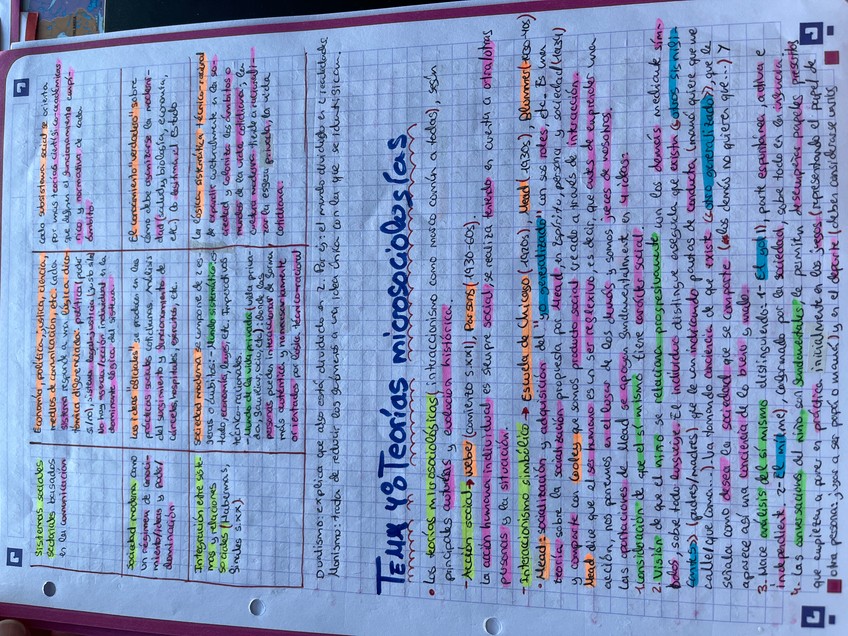 Sistemas sociales
sectoriales basados
en la comunicación
Economía, política, justicia, ciencia,
medios de comunicación, etc. Cada
sistema responde a una lógica dico-
tómica diferenciada: política (poder
sí/no), sistema legal/justicia (justo sí/no)
No hay agencia/acción individual en la
dominante lógica del sistema.
cada subsistema social se orienta
por unas teorías científico-académicas
que definen el funcionamiento empí-
rico y normativo de cada
ámbito
Sociedad moderna como
un régimen de conoci-
miento/ideas y poder/
dominación
Las ideas oficiales se producen en las
prácticas sociales cotidianas. Análisis
del surgimiento y funcionamiento de
cárceles, hospitales, escuelas, etc.
El conocimiento "verdadero" sobre
cómo debe organizarse la moderni-
dad (salud y biología, economía,
etc.) lo legitima el Estado
Integración entre siste-
mas y relaciones
sociales (Habermas,
finales s.XX).
Sociedad moderna se compone de 2 es-
feras o ámbitos: - Mundo sistemático: es-
tado, economía, leyes, etc. Imperativos
técnico-racionales.
- Mundo de la vida: unidad, vida priva-
da, familiar, ocio, etc.; donde las
personas pueden interaccionar de forma
más auténtica y no necesariamente
orientados por lógica técnico-racional
La lógica sistemática técnico-racional
se expande gradualmente en la so-
ciedad y coloniza los ámbitos o
mundos de la vida cotidiana; la
sociedad moderna tiende a racionali-
zar la esfera privada/la vida
cotidiana.
Dualismo: explica que algo está dividido en 2. Por ej: el mundo dividido en 2 realidades
Monismo: trata de reducir los fenómenos a una idea única con la que se identifican.
TEMA 4B Teorías microsociológicas
• Las teorías microsociológicas (interaccionismo como marco común a todas), según
principales autores y evolución histórica:
- Acción social → Weber (comienzo s.XX), Parsons (1930-60s).
La acción humana individual es siempre social, se realiza teniendo en cuenta a otra/otras
personas y la situación.
- Interaccionismo simbólico → Escuela de Chicago (1920s), Mead (1930s), Blumer (1930-40s)
• Mead: socialización y adquisición del "yo generalizado" en sus roles, etc. Es una
teoría sobre la socialización propuesta por Mead, en Espíritu, persona y sociedad (1934)
y comparte con Cooley que somos producto social creado a través de interacción.
Mead dice que el ser humano es un ser reflexivo, es decir, que antes de emprender una
acción, nos ponemos en el lugar de los demás y somos jueces de nosotros.
Las aportaciones de Mead se apoyan fundamentalmente en 4 ideas:
1. Consideración de que el sí mismo tiene carácter social
2. Visión de que el niño se relaciona progresivamente con los demás mediante sím-
bolos, sobre todo lenguaje. El individuo distingue enseguida que existen «otros signifi-
cantes» (padres/madres) que le van indicando pautas de conducta (mamá quiere que me
calle/que coma...). Va tomando conciencia de que existe «otro generalizado», que le
señala como desea la sociedad que se comporte (a los demás no quieren que...) Y
aparece así una conciencia de lo bueno y malo.
3. Hace análisis del sí mismo distinguiendo: 1- El yo (I), parte espontánea, activa e
independiente. 2- El mí (me) conformado por la sociedad, sobre todo en la infancia.
4. Las consecuencias del niño son fundamentales, le permiten desempeñar papeles prescritos,
que empieza a poner en práctica inicialmente en los juegos (representando el papel de
otra persona; jugar a ser papá o mamá) y en el deporte (deben considerarse varios